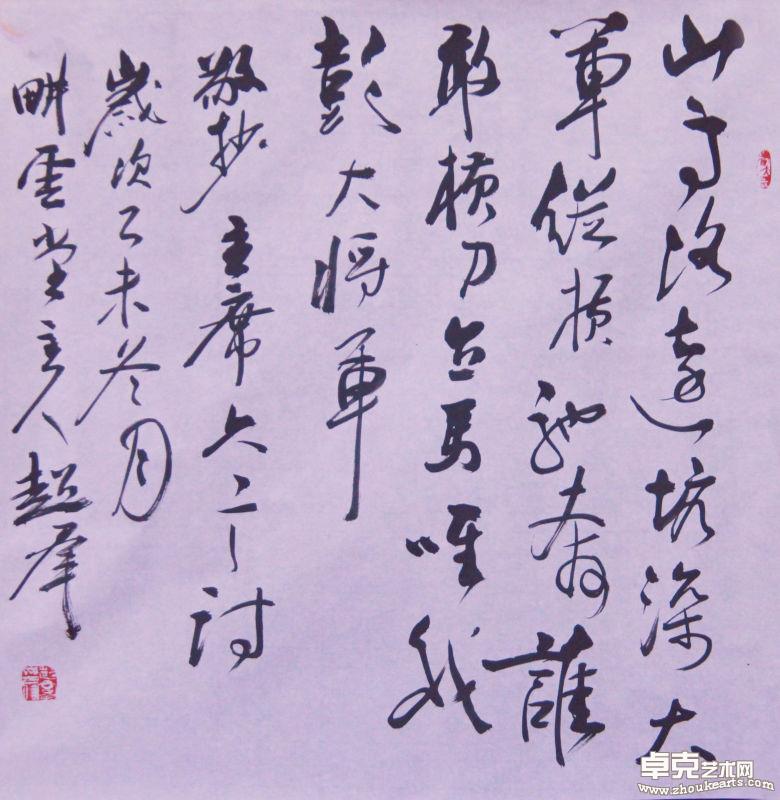 山高路遠坑深大
軍縱横馳奔誰
敢横刀立馬唯我
彭大将軍
敬抄主席六言詩
歲次乙未冬月
畊雲堂主人超群
卓克艺术网
www.zhoukearts.com